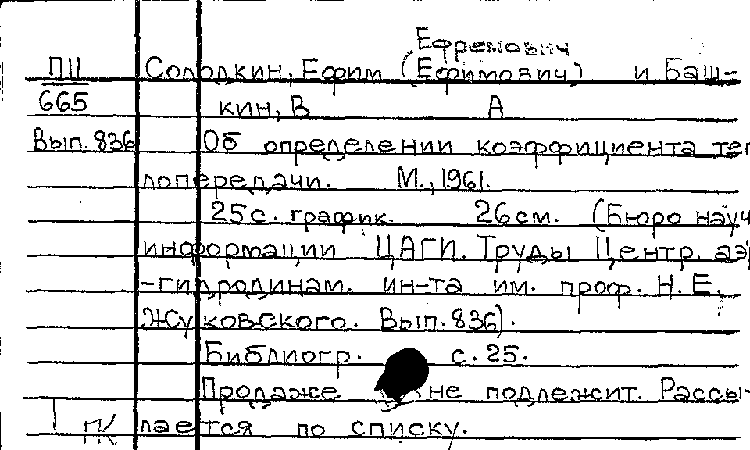 Ефремович
ПII Солодкин, Ефим (Ефимович) и Баш-
665 кин, В А
Вып. 836 Об определении коэффициента теп
лопередачи. М., 1961.
25 с. график. 26 см. (Бюро науч
информации ЦАГИ. Труды Центр. аэр
-гидродинам. ин-та им. проф. Н. Е.
Жуковского. Вып. 836).
Библиогр. с. 25.
Продаже не подлежит. Рассы-
ПК лается по списку.